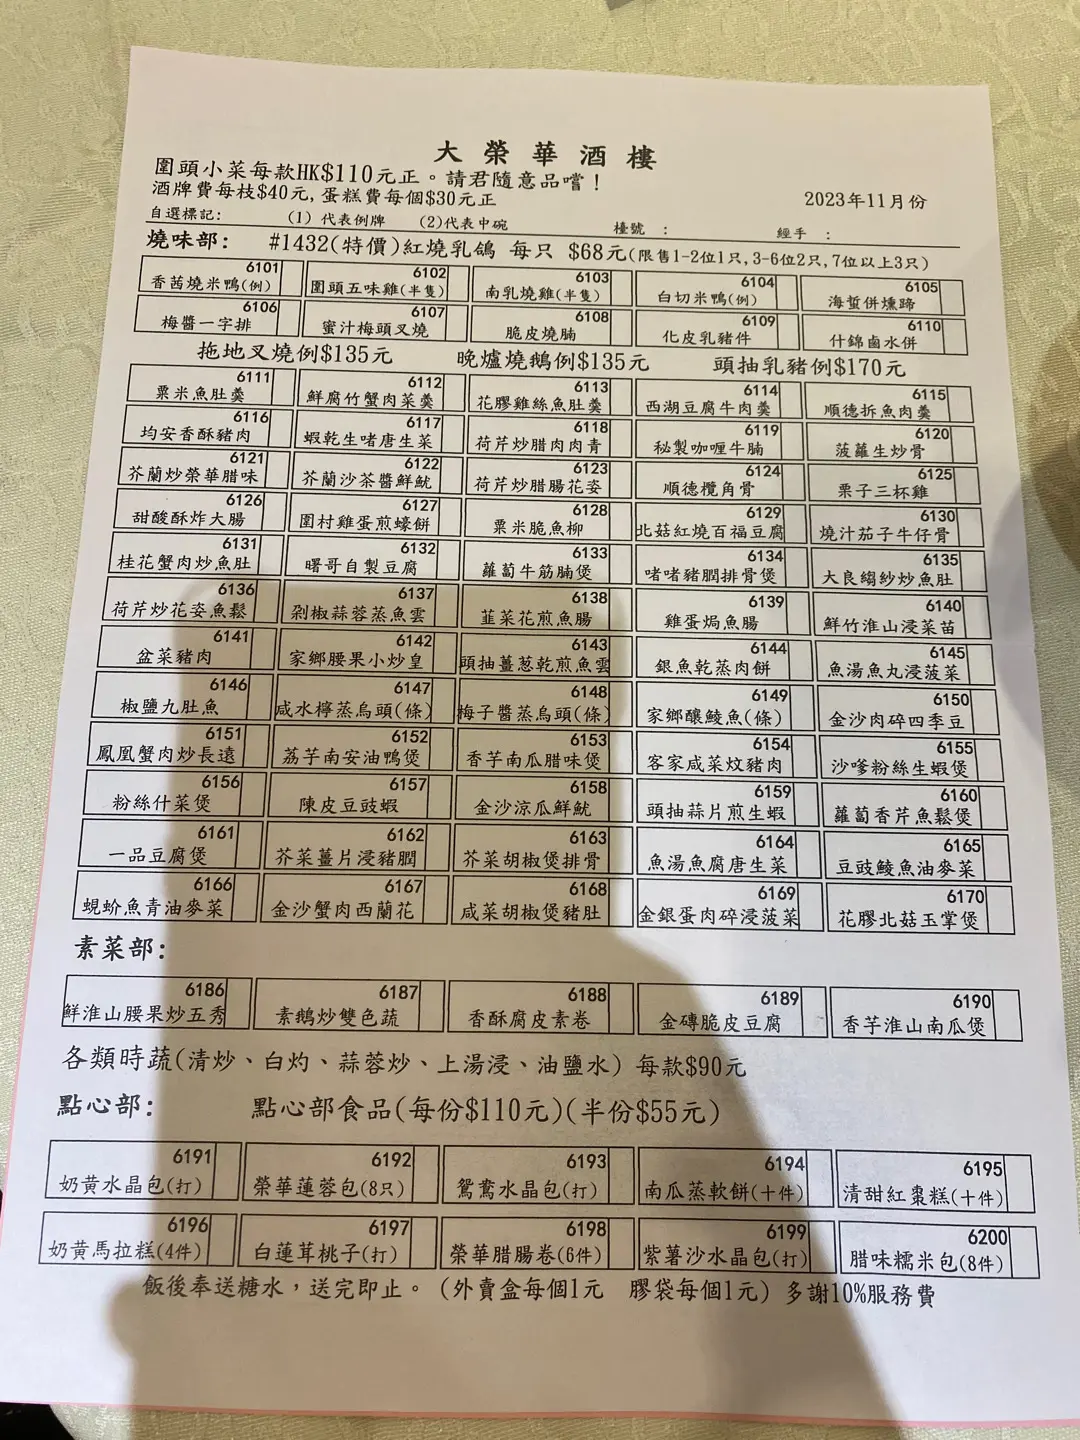 大榮華酒樓
圍頭小菜每款HK$110元正。請君隨意品嚐！
酒牌費每枝$40元,蛋糕費每個$30元正
2023年11月份
自選標記: (1) 代表例牌 (2)代表中碗 檯號 : 經手 :
燒味部: #1432(特價)紅燒乳鴿 每只 $68元(限售1-2位1只,3-6位2只,7位以上3只)
6101 6102 6103 6104 6105
香茜燒米鴨(例) 圍頭五味雞(半隻) 南乳燒雞(半隻) 白切米鴨(例) 海蜇併燻蹄
6106 6107 6108 6109 6110
梅醬一字排 蜜汁梅頭叉燒 脆皮燒腩 化皮乳豬件 什錦鹵水併
拖地叉燒例$135元 晚爐燒鵝例$135元 頭抽乳豬例$170元
6111 6112 6113 6114 6115
粟米魚肚羹 鮮腐竹蟹肉菜羹 花膠雞絲魚肚羹 西湖豆腐牛肉羹 順德拆魚肉羹
6116 6117 6118 6119 6120
均安香酥豬肉 蝦乾生啫唐生菜 荷芹炒腊肉肉青 秘製咖喱牛腩 菠蘿生炒骨
6121 6122 6123 6124 6125
芥蘭炒榮華腊味 芥蘭沙茶醬鮮魷 荷芹炒腊腸花姿 順德欖角骨 栗子三杯雞
6126 6127 6128 6129 6130
甜酸酥炸大腸 圍村雞蛋煎蠔餅 粟米脆魚柳 北菇紅燒百福豆腐 燒汁茄子牛仔骨
6131 6132 6133 6134 6135
桂花蟹肉炒魚肚 曙哥自製豆腐 蘿蔔牛筋腩煲 啫啫豬膶排骨煲 大良縐紗炒魚肚
6136 6137 6138 6139 6140
荷芹炒花姿魚鬆 剁椒蒜蓉蒸魚雲 韮菜花煎魚腸 雞蛋焗魚腸 鮮竹淮山浸菜苗
6141 6142 6143 6144 6145
盆菜豬肉 家鄉腰果小炒皇 頭抽薑葱乾煎魚雲 銀魚乾蒸肉餅 魚湯魚丸浸菠菜
6146 6147 6148 6149 6150
椒鹽九肚魚 咸水檸蒸烏頭(條) 梅子醬蒸烏頭(條) 家鄉釀鯪魚(條) 金沙肉碎四季豆
6151 6152 6153 6154 6155
鳳凰蟹肉炒長遠 荔芋南安油鴨煲 香芋南瓜腊味煲 客家咸菜炆豬肉 沙嗲粉絲生蝦煲
6156 6157 6158 6159 6160
粉絲什菜煲 陳皮豆豉蝦 金沙涼瓜鮮魷 頭抽蒜片煎生蝦 蘿蔔香芹魚鬆煲
6161 6162 6163 6164 6165
一品豆腐煲 芥菜薑片浸豬膶 芥菜胡椒煲排骨 魚湯魚腐唐生菜 豆豉鯪魚油麥菜
6166 6167 6168 6169 6170
蜆蚧魚青油麥菜 金沙蟹肉西蘭花 咸菜胡椒煲豬肚 金銀蛋肉碎浸菠菜 花膠北菇玉掌煲
素菜部:
6186 6187 6188 6189 6190
鮮淮山腰果炒五秀 素鵝炒雙色蔬 香酥腐皮素卷 金磚脆皮豆腐 香芋淮山南瓜煲
各類時蔬(清炒、白灼、蒜蓉炒、上湯浸、油鹽水) 每款$90元
點心部: 點心部食品(每份$110元)(半份$55元)
6191 6192 6193 6194 6195
奶黃水晶包(打) 榮華蓮蓉包(8只) 鴛鴦水晶包(打) 南瓜蒸軟餅(十件) 清甜紅棗糕(十件)
6196 6197 6198 6199 6200
奶黃馬拉糕(4件) 白蓮茸桃子(打) 榮華腊腸卷(6件) 紫薯沙水晶包(打) 腊味糯米包(8件)
飯後奉送糖水，送完即止。 (外賣盒每個1元 膠袋每個1元) 多謝10%服務費